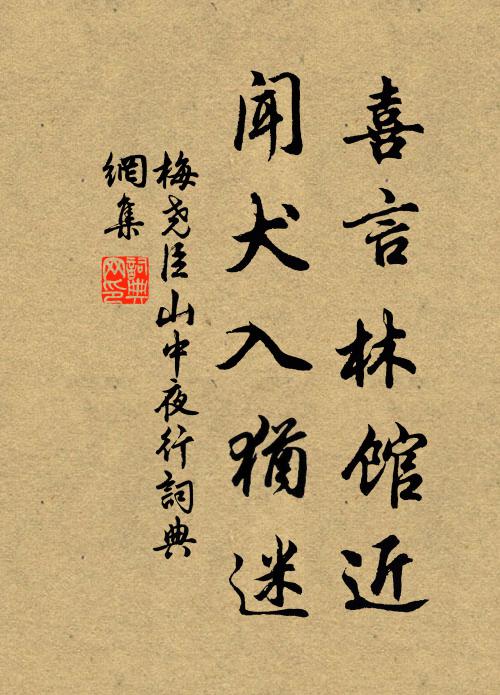 喜言林館近
聞犬入猶迷
梅堯臣山中夜行詞典
網集
詞典
網印